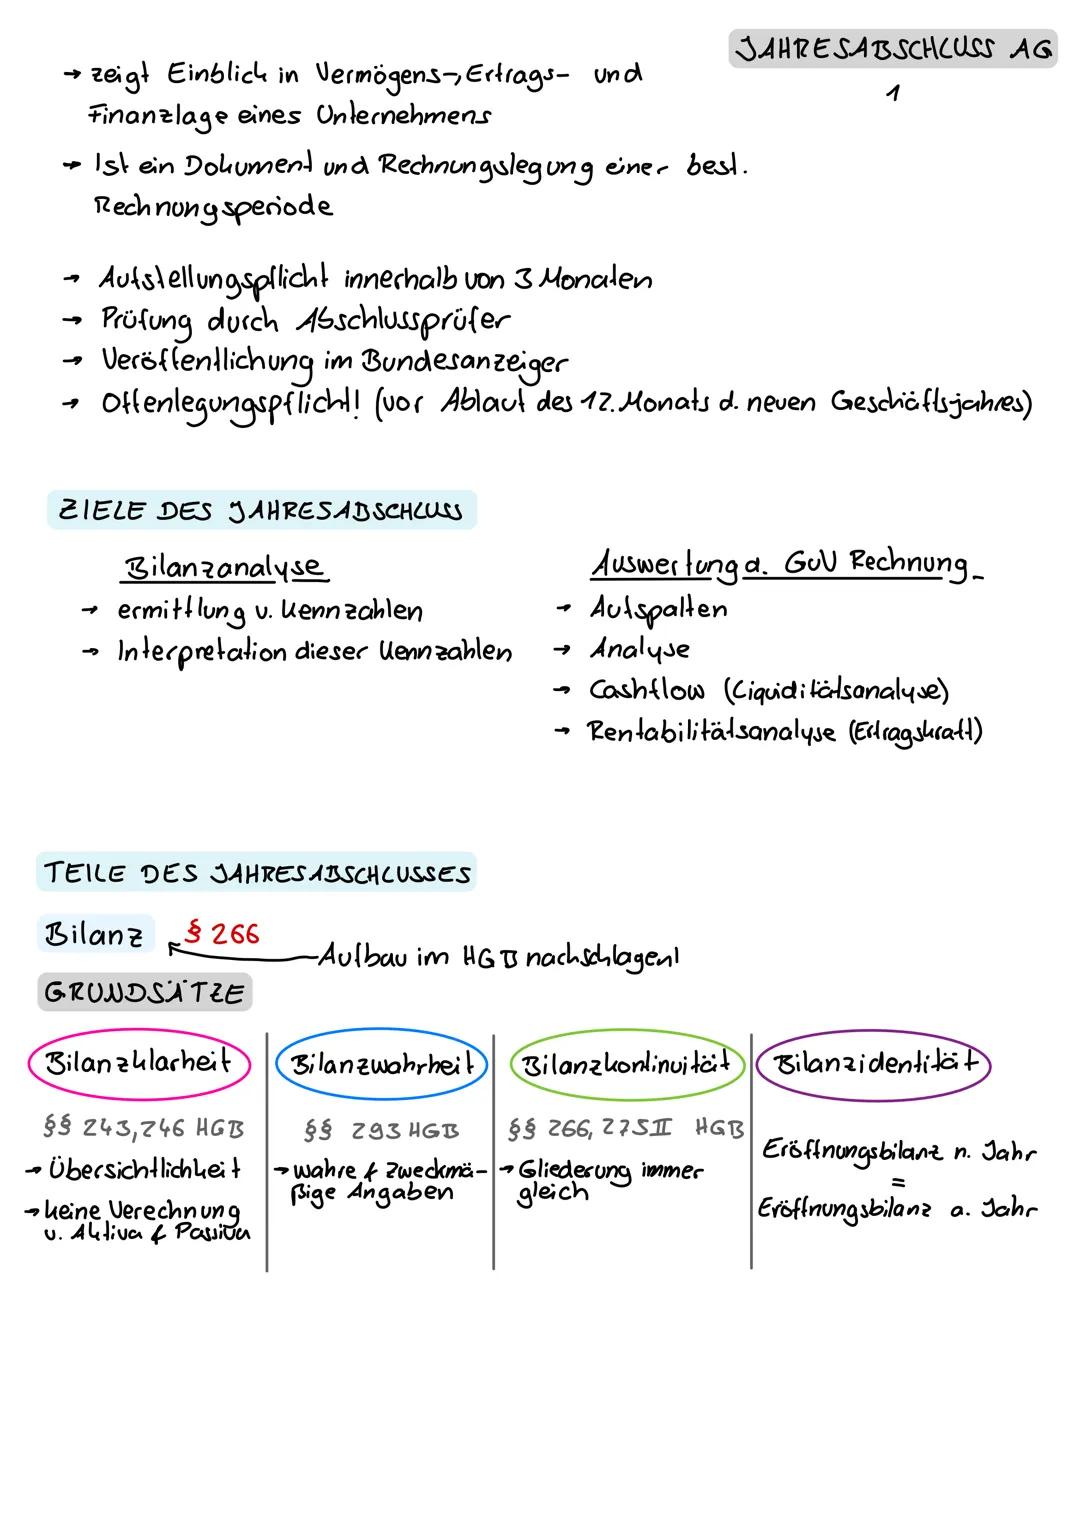 JAHRESABSCHLUSS AG
1
→ zeigt Einblick in Vermögens-, Ertrags- und
Finanzlage eines Unternehmens
→ Ist ein Dokument und Rechnungslegung einer best.
Rechnungsperiode
→ Aufstellungspflicht innerhalb von 3 Monaten
→ Prüfung durch Abschlussprüfer
→ Veröffentlichung im Bundesanzeiger
→ Offenlegungspflicht! (vor Ablauf des 12. Monats d. neuen Geschäftsjahres)
ZIELE DES JAHRESABSCHLUSS
Bilanzanalyse
→ ermittlung v. Kennzahlen
→ Interpretation dieser Kennzahlen
Auswertung d. GuV Rechnung
→ Aufspalten
→ Analyse
→ Cashflow (Liquiditätsanalyse)
→ Rentabilitätsanalyse (Ertragskraft)
TEILE DES JAHRESABSCHLUSSES
Bilanz § 266
Aufbau im HGB nachschlagen!
GRUNDSÄTZE
Bilanzklarheit
§§ 243, 246 HGB
→ Übersichtlichkeit
→ keine Verechnung
v. Aktiva & Passiva
Bilanzwahrheit
§§ 293 HGB
→ wahre & zweckmä-
ßige Angaben
Bilanzkontinuität
§§ 266, 275 II HGB
→ Gliederung immer
gleich
Bilanzidentität
Eröffnungsbilanz n. Jahr
=
Eröffnungsbilanz a. Jahr